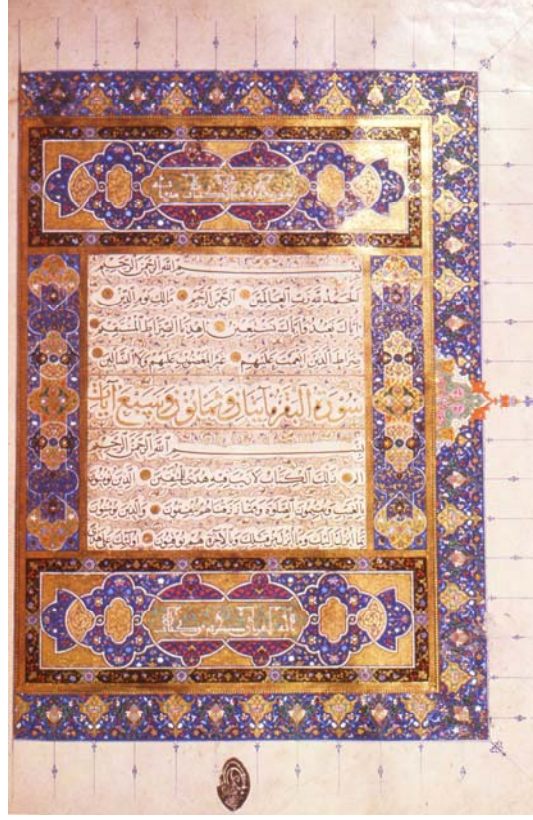 بِسْمِ اللَّهِ الرَّحْمَنِ الرَّحِيمِ
الْحَمْدُ لِلَّهِ رَبِّ الْعَالَمِينَ الرَّحْمَنِ الرَّحِيمِ مَالِكِ يَوْمِ الدِّينِ
إِيَّاكَ نَعْبُدُ وَإِيَّاكَ نَسْتَعِينُ اهْدِنَا الصِّرَاطَ الْمُسْتَقِيمَ
صِرَاطَ الَّذِينَ أَنْعَمْتَ عَلَيْهِمْ غَيْرِ الْمَغْضُوبِ عَلَيْهِمْ وَلَا الضَّالِّينَ
سورة البقرة مايتان وثمانون وسبع آيات
بِسْمِ اللَّهِ الرَّحْمَنِ الرَّحِيمِ
الم ذَلِكَ الْكِتَابُ لَا رَيْبَ فِيهِ هُدًى لِلْمُتَّقِينَ الَّذِينَ يُؤْمِنُونَ
بِالْغَيْبِ وَيُقِيمُونَ الصَّلَوةَ وَمِمَّا رَزَقْنَاهُمْ يُنْفِقُونَ وَالَّذِينَ يُؤْمِنُونَ
بِمَا أُنْزِلَ إِلَيْكَ وَمَا أُنْزِلَ مِنْ قَبْلِكَ وَبِالْآخِرَةِ هُمْ يُوقِنُونَ أُولَئِكَ عَلَى هُدًى